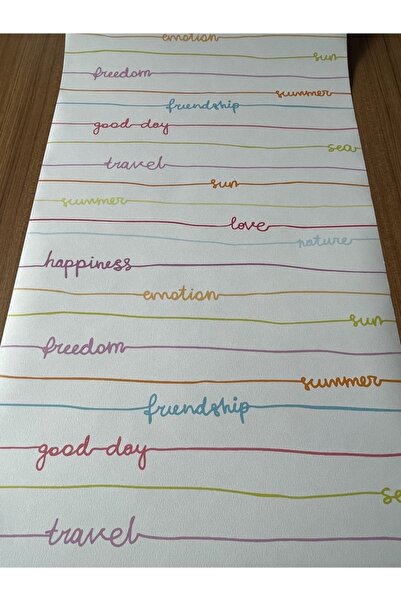 emotion
sun
freedom
summer
friendship
good day
sea
travel
sun
summer
love
nature
happiness
emotion
sun
freedom
summer
friendship
good day
se
travel